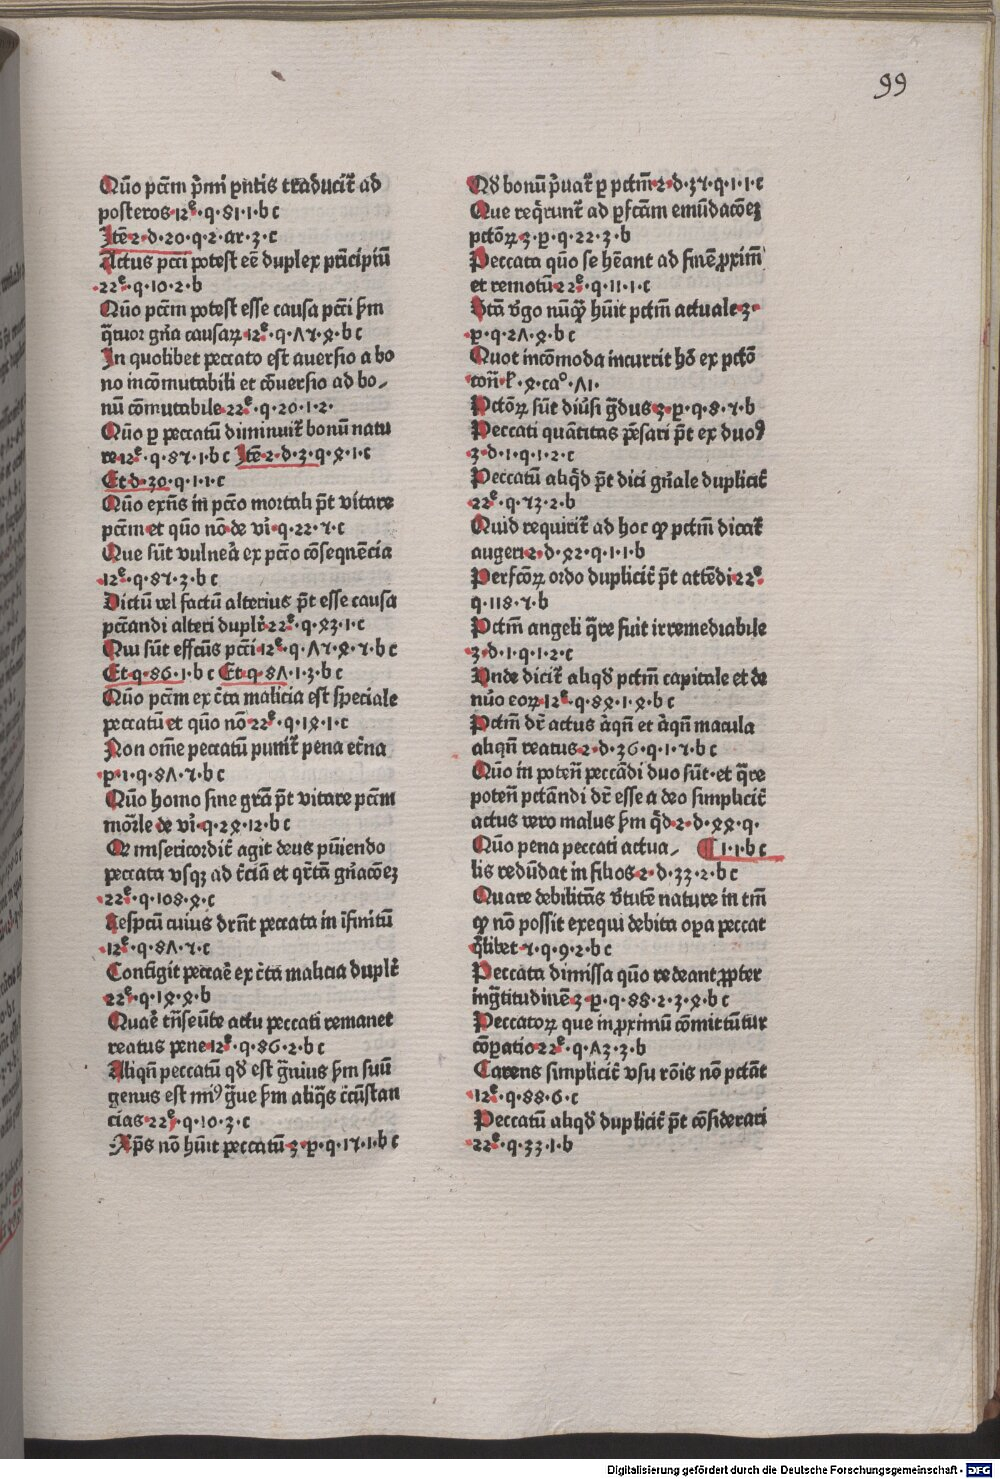 99
Quō pctm̄ p̄mi pntis traducit̄ ad
posteros·12ͤ·q·81·1·b c
Itē 2·d·20·q·2·ar·3·c
Actus pcti potest eē duplex pͥncipiū
22ͤ·q·10·2·b
Quō pctm̄ potest esse causa pcti ẜm
q̄tuor gn̄a causaꝝ 12ͤ·q·Λ7·ꝝ·b c
In quolibet peccato est auersio a bo
no incōmutabili et cōuersio ad bo⸗
nū cōmutabile·22ͤ·q·20·1·2·
Quō ꝑ peccatū diminuit̄ bonū natu
re·12ͤ·q·87·1·b c Itē 2·d·3·q·ꝝ·1·c
Et d·30·q·1·1·c
Quō exn̄s in pctō mortali pt̄ vitare
pctm̄ et quō nō de vi·q·22·7·c
Que sūt vulnera ex pctō cōsequēcia
12ͤ·q·87·3·b c
Dictū vel factū alterius pt̄ esse causa
pctandi alteri duplr̄ 22ͤ·q·ꝝ3·1·c
Qui sūt effctūs pcti 12ͤ·q·Λ7·ꝝ·7·b c
Et q·86·1·b c Et q·8Λ·1·3·b c
Quō pctm̄ ex c̄ta malicia est speciale
peccatū et quō nō 22ͤ·q·1ꝝ·1·c
Non om̄e peccatū punit̄ pena et̄na
p·1·q·8Λ·7·b c
Quō homo sine gr̄a pt̄ vitare pctm̄
mor̄le de vi·q·2ꝝ·12·b c
Qꝛ misericordit̄ agit deus pūiendo
peccata vsqꝫ ad t̄ciā et qr̄tā gn̄acōeꝫ
22ͤ·q·108·ꝝ·c
Respctū cuius drn̄t peccata in īfinitū
12ͤ·q·8Λ·7·c
Contigit peccare ex c̄ta malicia duplr̄
22ͤ·q·1ꝝ·ꝝ·b
Quare tn̄seūte actu peccati remanet
reatus pene 12ͤ·q·86·2·b c
Aliqn̄ peccatū qd̄ est ḡuius ẜm suū
genus est minꝰ ḡue ẜm aliq̄s cͥcūstan
cias 22ͤ·q·10·3·c
Xp̄s nō hūit peccatū 3·p·q·17·1·b c
Qd̄ bonū pͥuat̄ ꝑ pctm̄ 2·d·37·q·1·1·c
Que reqͥrunt̄ ad ꝑfctam emūdacōeꝫ
pctōꝝ 3·p·q·22·3·b
Peccata quō se hēant ad finē ꝓximū
et remotū 22ͤ·q·11·1·c
Bt̄a v̄go nūqꝫ hūit pctm̄ actuale 3·
p·q·2Λ·ꝝ·b c
Quot incōmoda incurrit hō ex pctō
9tn̄·l·ꝝ·ca°·Λ1·
Pctōꝝ sūt diūsi ḡdus 3·p·q·8·7·b
Peccati quātitas pēsari pt̄ ex duobꝰ
3·d·1·q·1·2·c
Peccatū aliqd̄ pt̄ dici gn̄ale duplicit̄
22ͤ·q·73·2·b
Quid requirit̄ ad hoc qꝫ pctm̄ dicat̄
augeri 2·d·ꝝ2·q·1·1·b
Perfctōꝝ ordo duplicit̄ pt̄ attēdi 22ͤ·
q·118·7·b
Pctm̄ angeli q̄re fuit irremediabile
3·d·1·q·1·2·c
Vnde dicit̄ aliqd̄ pctm̄ capitale et de
nūo eoꝝ 12ͤ·q·8ꝝ·1·ꝝ·b c
Pctm̄ dr̄ actus āqn̄ et āqn̄ macula
aliqn̄ reatus 2·d·36·q·1·7·b c
Quō in poten̄ peccādi duo sūt·et q̄re
poten̄ pctandi dr̄ esse a deo simplicit̄
actus vero malus ẜm qͥd 2·d·ꝝꝝ·q·
Quō pena peccati actua⸗ ¶ 1·1·b c
lis redūdat in filios 2·d·33·2·b c
Quare debilitas v̄tutē nature in tm̄
qꝫ nō possit exequi debita oꝑa peccat
qͥlibet 7·q·9·2·b c
Peccata dimissa quō redeant ꝓpter
ing̈titudinē 3·p·q·88·2·3·ꝝ·b c
Peccatoꝝ que in ꝓximū cōmittūtur
cōꝑatio 22ͤ·q·Λ3·3·b
Carens simplicit̄ vsu rōis nō pctāt
12ͤ·q·88·6·c
Peccatū aliqd̄ duplicit̄ pt̄ cōsiderari
22ͤ·q·33·1·b
Digitalisierung gefördert durch die Deutsche Forschungsgemeinschaft · DFG